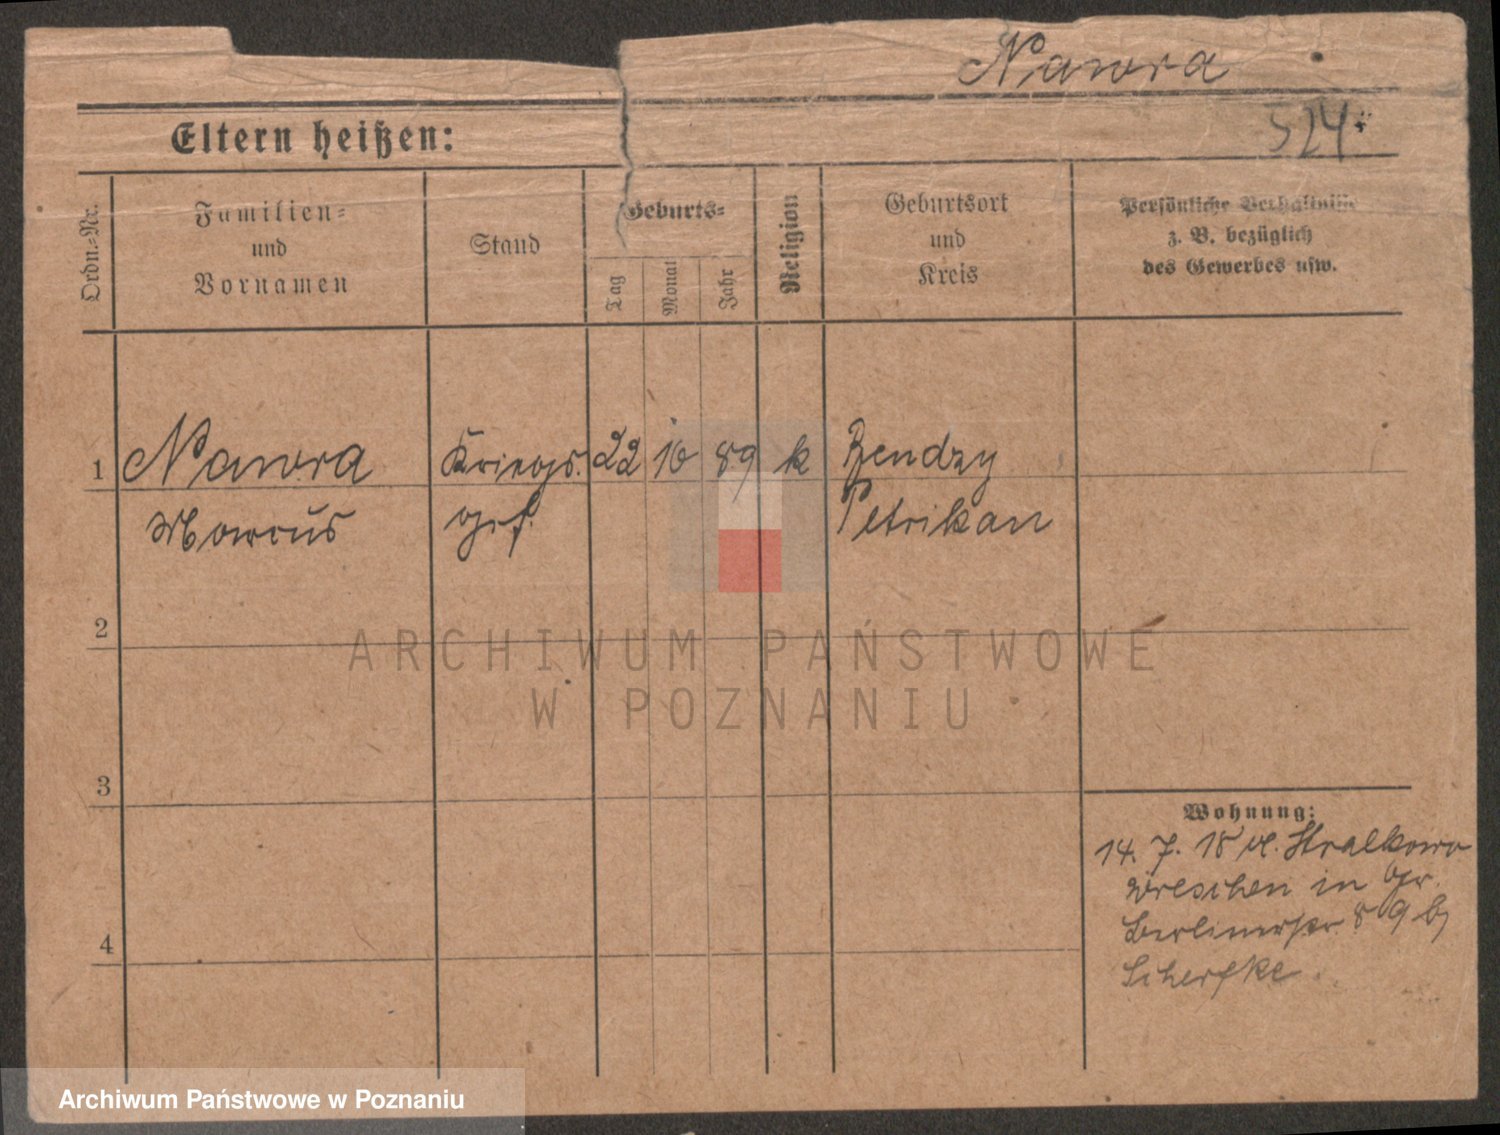 Nawra
524
Eltern heißen:
Ordn.-Nr.
Familien-
und
Vornamen
Stand
Geburts-
Tag
Monat
Jahr
Religion
Geburtsort
und
Kreis
Persönliche Verhältnisse
z. B. bezüglich
des Gewerbes usw.
1 Nawra Kriegs. 22 10 89 k Bendzy
Marcus gef. Petrikan
2
3
4
Wohnung:
14. 7. 18 v. Stralkowo
Wreschen in Gr.
Berlinerstr 89 b/
Scherfke
ARCHIWUM PAŃSTWOWE
W POZNANIU
Archiwum Państwowe w Poznaniu